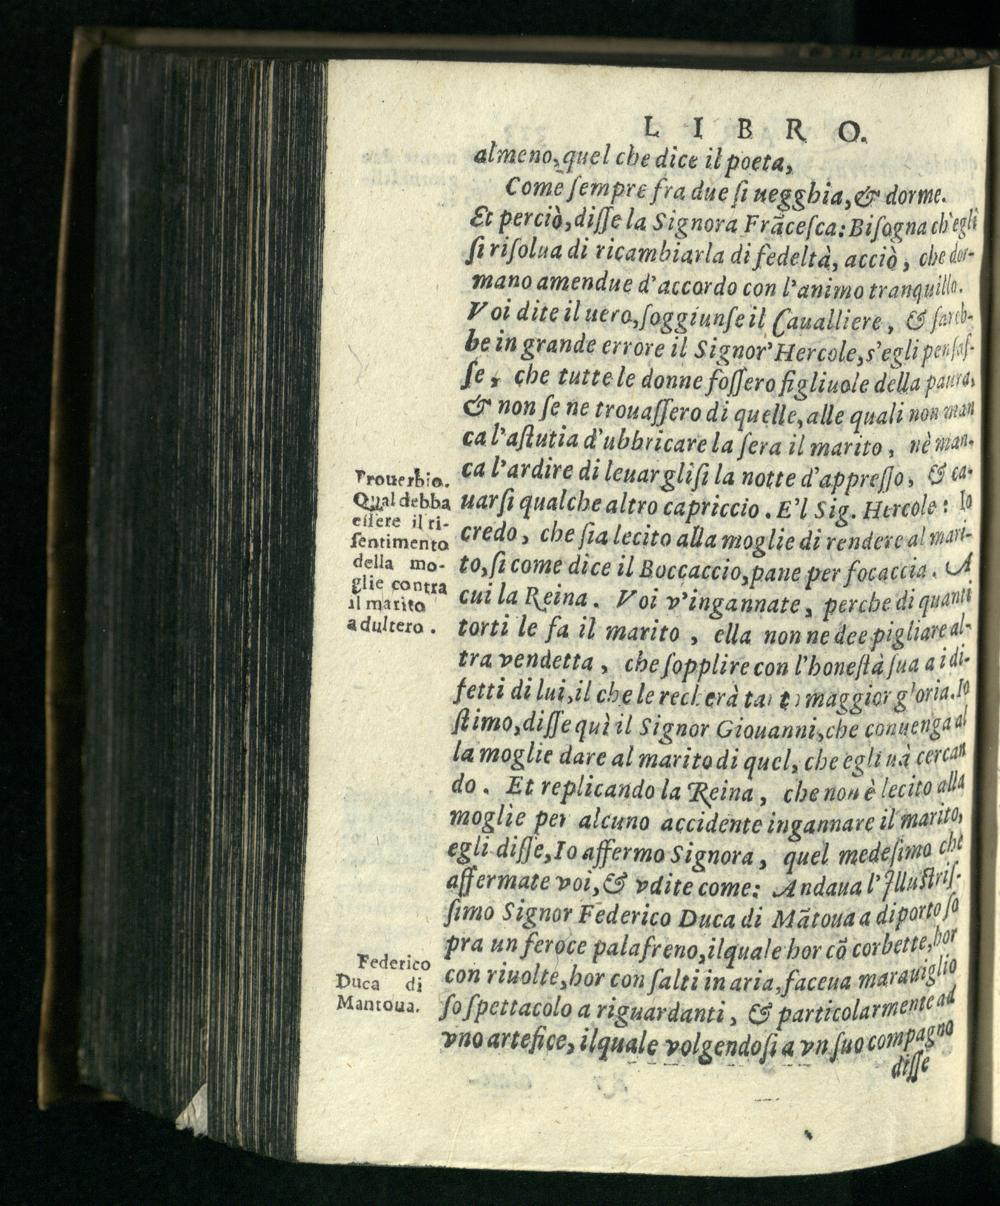 LIBRO.
almeno, quel che dice il poeta,
Come ſempre fra due ſi uegghia, & dorme.
Et perciò, diſſe la Signora Frāceſca: Biſogna ch'egli
ſi riſolua di ricambiarla di fedeltà, acciò, che dor-
mano amendue d'accordo con l'animo tranquillo.
Voi dite il uero, ſoggiunſe il Caualliere, & ſareb-
be in grande errore il Signor' Hercole, s'egli penſaſ-
ſe, che tutte le donne foſſero figliuole della paura,
& non ſe ne trouaſſero di quelle, alle quali non man
ca l'aſtutia d'ubbricare la ſera il marito, nè man-
ca l'ardire di leuargliſi la notte d'appreſſo, & ca-
uarſi qualche altro capriccio. E'l Sig. Hercole: Io
credo, che ſia lecito alla moglie di rendere al mari-
to, ſi come dice il Boccaccio, pane per focaccia. A
cui la Reina. Voi v'ingannate, perche di quanti
torti le fa il marito, ella non ne dee pigliare al-
tra vendetta, che ſopplire con l'honeſtà ſua a i di-
fetti di lui, il che le recherà tanto maggior gloria. Io
ſtimo, diſſe quì il Signor Giouanni, che conuenga al
la moglie dare al marito di quel, che egli uà cercan
do. Et replicando la Reina, che non è lecito alla
moglie per alcuno accidente ingannare il marito,
egli diſſe, Io affermo Signora, quel medeſimo che
affermate voi, & vdite come: Andaua l'Illuſtriſ-
ſimo Signor Federico Duca di Mātoua a diporto ſo
pra un feroce palafreno, ilquale hor cō corbette, hor
con riuolte, hor con ſalti in aria, faceua marauiglio
ſo ſpettacolo a riguardanti, & particolarmente ad
vno artefice, ilquale volgendoſi a vn ſuo compagno
diſſe
Prouerbio.
Qual debba
eſſere il ri-
ſentimento
della mo-
glie contra
il marito
adultero.
Federico
Duca di
Mantoua.